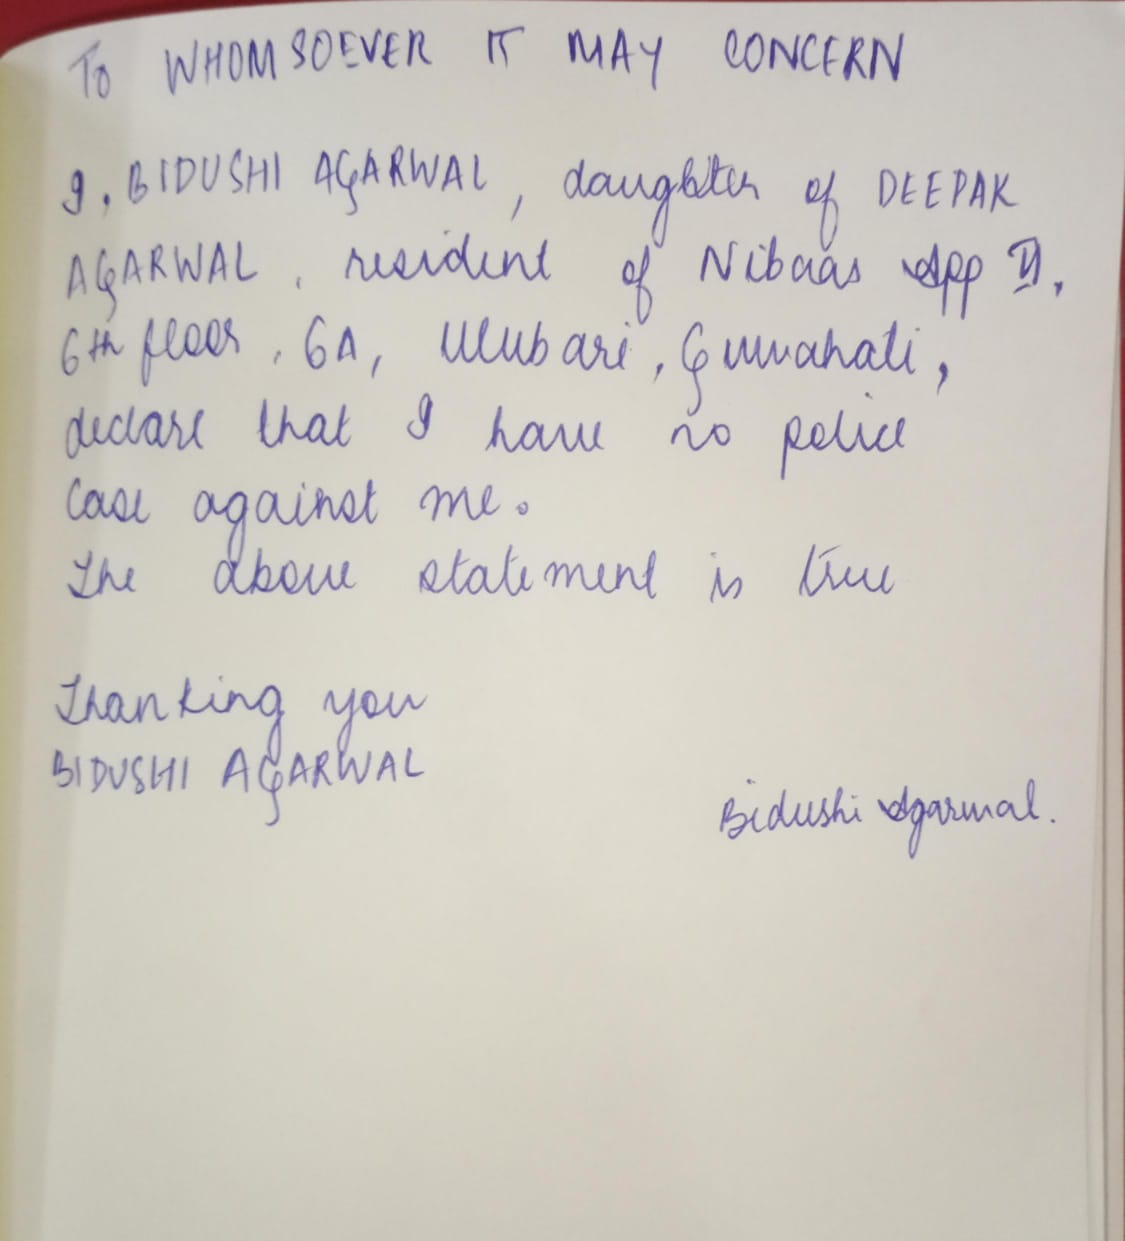 To WHOMSOEVER IT MAY CONCERN
I, BIDUSHI AGARWAL, daughter of DEEPAK
AGARWAL, resident of Nibaas App II,
6th floor, 6A, Ulubari, Guwahati,
declare that I have no police
case against me.
The above statement is true
Thanking you
BIDUSHI AGARWAL
Bidushi Agarwal.